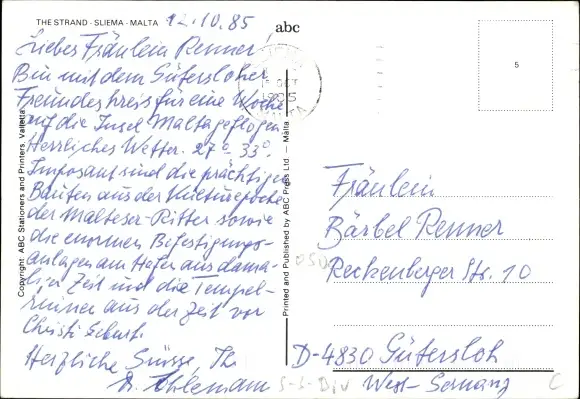 THE STRAND - SLIEMA - MALTA
12.10.85
abc
Liebes Fräulein Renner,
Bin mit dem Gütersloher
Freundeskreis für eine Woche
auf die Insel Malta geflogen
Herrliches Wetter. 27 - 33°.
Imposant sind die prächtigen
Bauten aus der Kulturepoche
der Malteser-Ritter sowie
die enormen Befestigungs-
anlagen am Hafen aus dama-
liger Zeit und die Tempel-
ruinen aus der Zeit vor
Christi Geburt.
Herzliche Grüsse, Ihr
Copyright: ABC Stationers and Printers, Valletta
Printed and Published by ABC Press Ltd. — Malta
OCT
5
Fräulein
Bärbel Renner
Reckenberger Str. 10
D-4830 Gütersloh
West-Germany